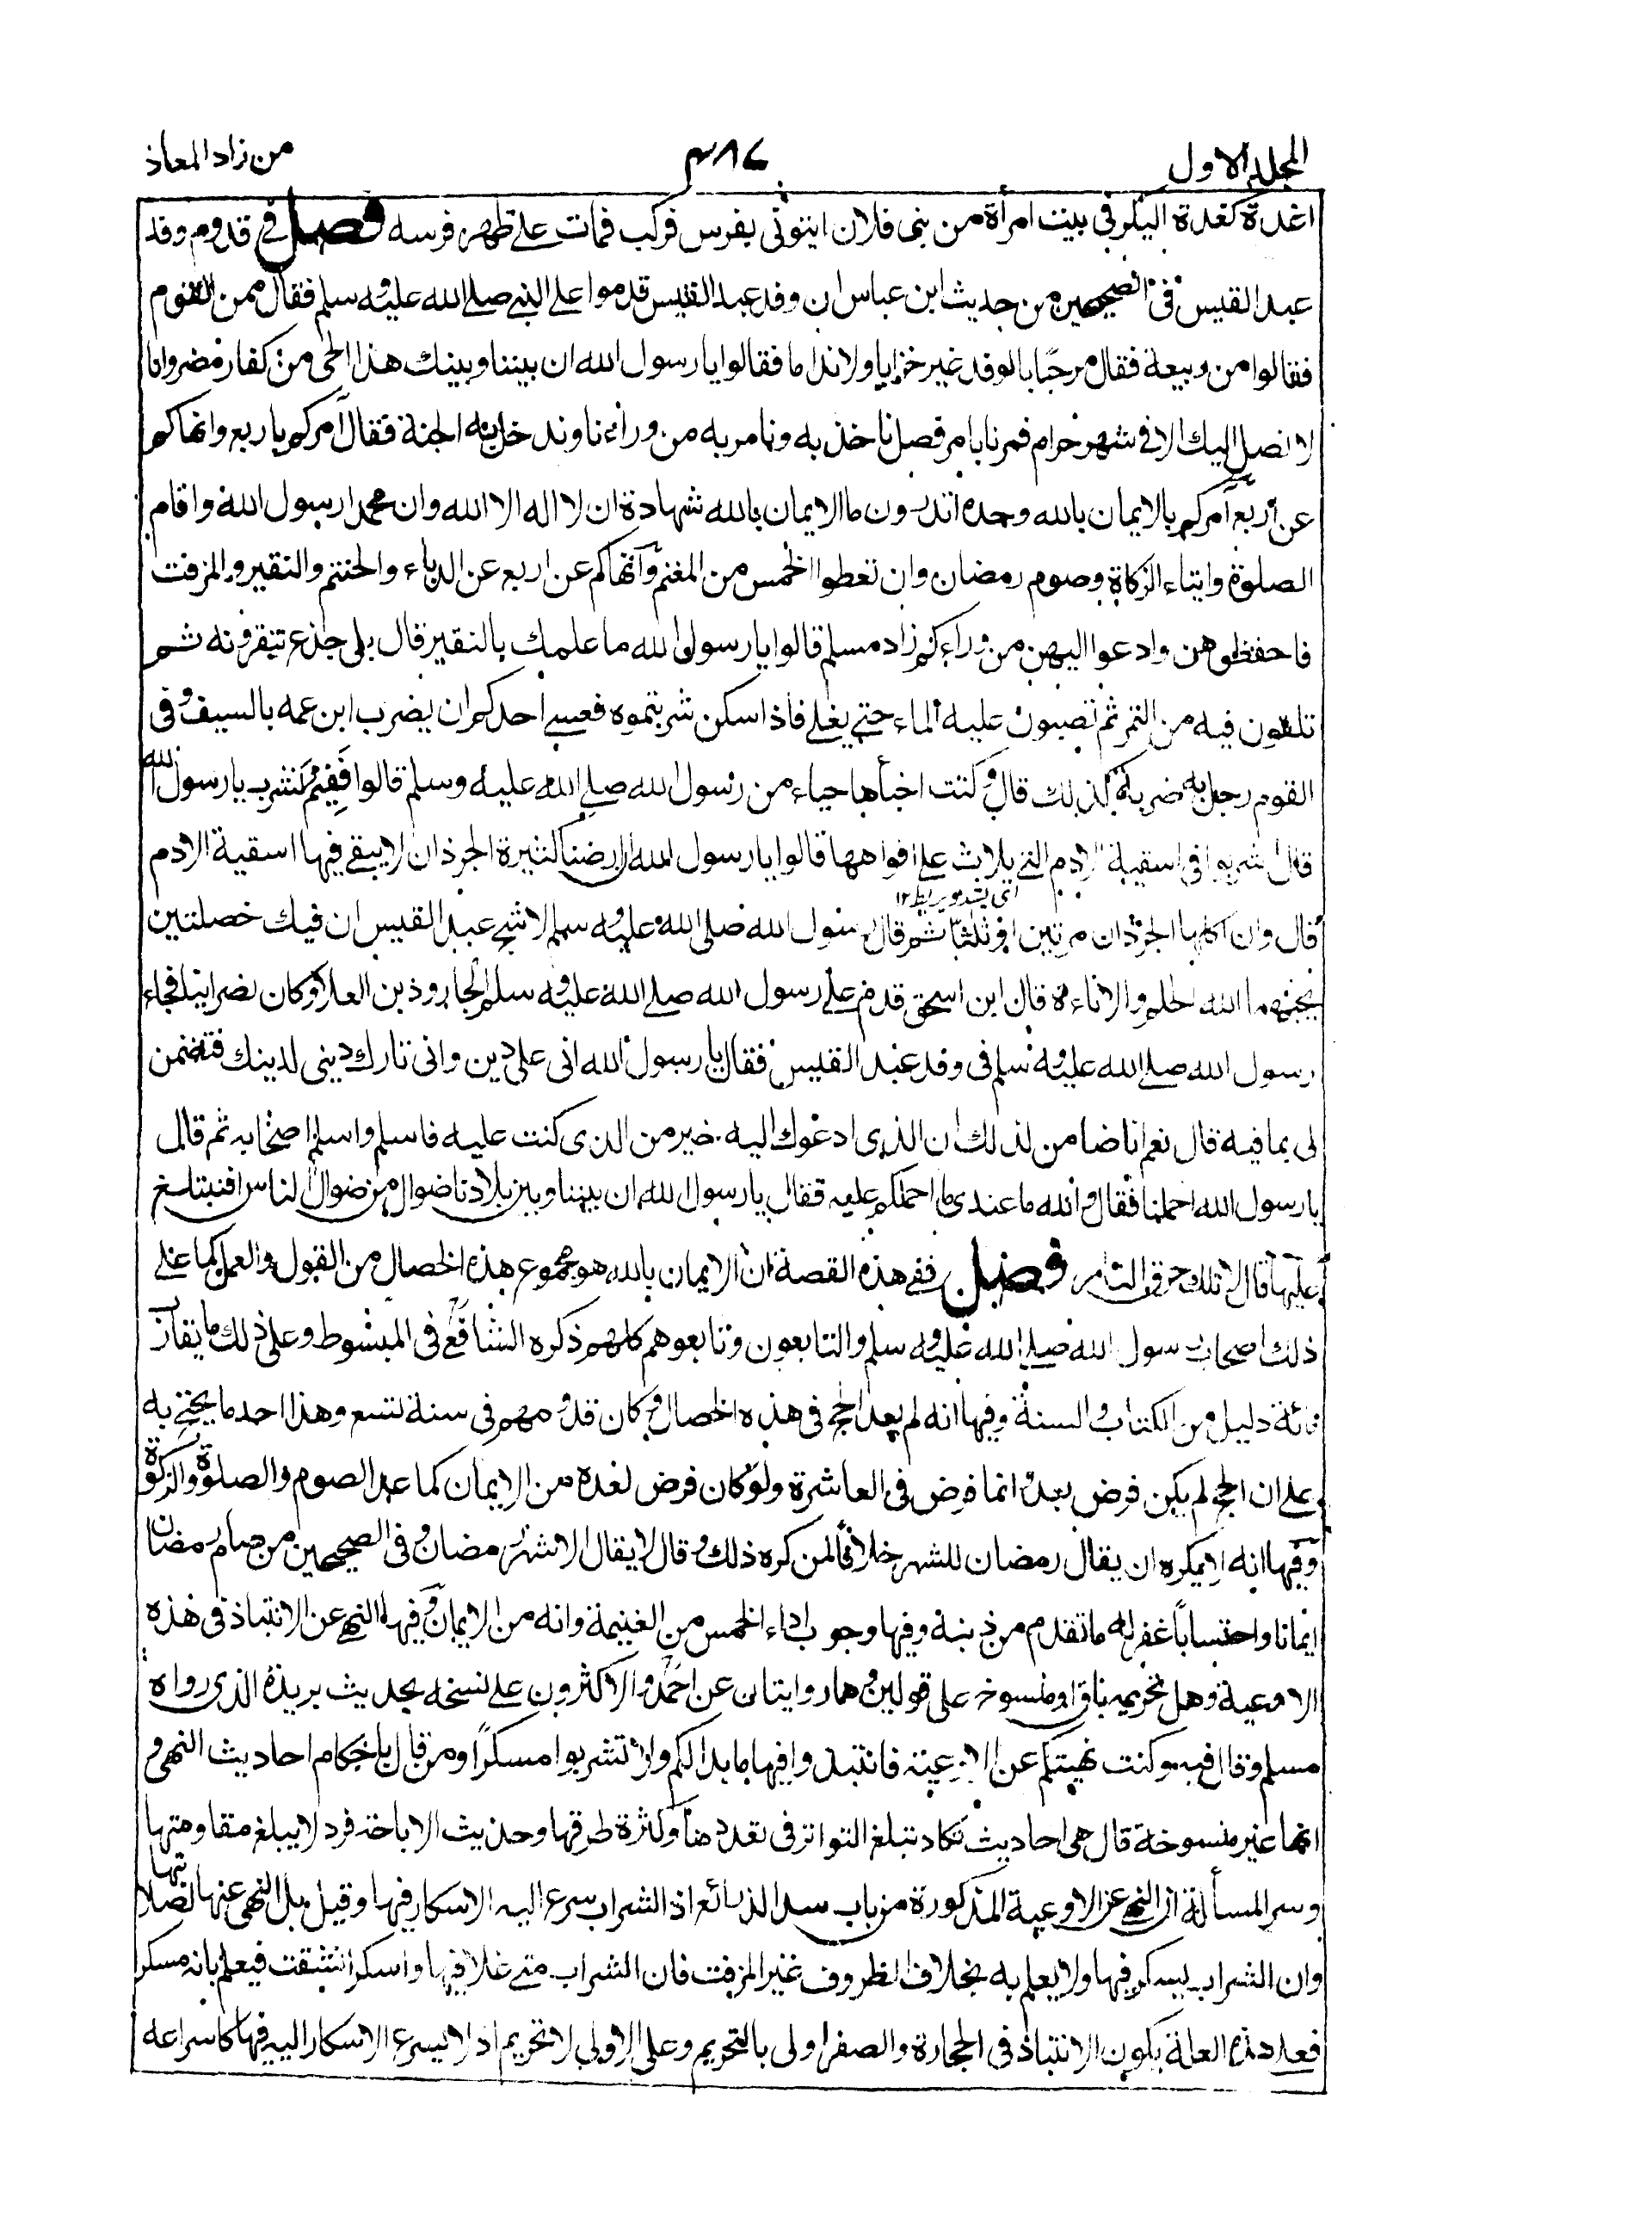 المجلد الاول
٤٨٦
من زاد المعاد
اغدة كغدة البكر فى بيت امرأة من بنى فلان ايتونى بفرس فركب فمات على ظهر فرسه فصل فى قدوم وفد
عبد القيس ففى الصحيحين من حديث ابن عباس ان وفد عبد القيس قدموا على النبى صلى الله عليه وسلم فقال ممن القوم
فقالوا من ربيعة فقال مرحبًا بالوفد غير خزايا ولا نداما فقالوا يا رسول الله ان بيننا وبينك هذا الحى من كفار مضر وانا
لا نصل اليك الا فى شهر حرام فمرنا بامر فصل ناخذ به ونامر به من وراءنا وندخل به الجنة فقال آمركم باربع وانهاكم
عن اربع آمركم بالايمان بالله وحده اتدرون ما الايمان بالله شهادة ان لا اله الا الله وان محمدا رسول الله واقام
الصلوة وايتاء الزكاة وصوم رمضان وان تعطوا الخمس من المغنم وانهاكم عن اربع عن الدباء والحنتم والنقير والمزفت
فاحفظوهن وادعوا اليهن من وراءكم زاد مسلم قالوا يا رسول الله ما علمك بالنقير قال بلى جذع تنقرونه ثم
تلقون فيه من التمر ثم تصبون عليه الماء حتى يغلى فاذا سكن شربتموه فعسى احدكم ان يضرب ابن عمه بالسيف وفى
القوم رجل به ضربة كذلك قال وكنت اخبأها حياء من رسول الله صلى الله عليه وسلم قالوا ففيم نشرب يا رسول الله
قال اشربوا فى اسقية الادم التى يلاث على افواهها قالوا يا رسول الله ان ارضنا كثيرة الجرذان لا يبقى فيها اسقية الادم
اى يشد ويربط ١٢
قال وان اكلها الجرذان مرتين او ثلثا ثم قال رسول الله صلى الله عليه وسلم لاشج عبد القيس ان فيك خصلتين
يحبهما الله الحلم والاناءة قال ابن اسحق قدم على رسول الله صلى الله عليه وسلم الجارود بن العلاء وكان نصرانيا فجاء
رسول الله صلى الله عليه وسلم فى وفد عبد القيس فقال يا رسول الله انى على دين وانى تارك دينى لدينك فتضمن
لى بما فيه قال نعم انا ضامن لذلك ان الذى ادعوك اليه خير من الذى كنت عليه فاسلم واسلم اصحابه ثم قال
يا رسول الله احملنا فقال والله ما عندى ما احملكم عليه فقال يا رسول الله ان بيننا وبين بلادنا ضوال من ضوال الناس افنبتلغ
عليها قال لا تلك حرق النار فصل ففى هذه القصة ان الايمان بالله هو مجموع هذه الخصال من القول والعمل كما على
ذلك اصحاب رسول الله صلى الله عليه وسلم والتابعون وتابعوهم كلهم ذكره الشافعى فى المبسوط وعلى ذلك ما يقارب
مائة دليل من الكتاب والسنة وفيها انه لم يعد الحج فى هذه الخصال وكان قدومهم فى سنة تسع وهذا احد ما يحتج به
على ان الحج لم يكن فرض بعد وانما فرض فى العاشرة ولو كان فرض لعده من الايمان كما عد الصوم والصلوة والزكوة
وفيها انه لا يكره ان يقال رمضان للشهر خلافا لمن كره ذلك وقال لا يقال الا شهر رمضان وفى الصحيحين من صام رمضان
ايمانا واحتسابا غفر له ما تقدم من ذنبه وفيها وجوب اداء الخمس من الغنيمة وانه من الايمان وفيها النهى عن الانتباذ فى هذه
الاوعية وهل تحريمه باق او منسوخ على قولين وهما روايتان عن احمد والاكثرون على نسخه بحديث بريدة الذى رواه
مسلم وقال فيه وكنت نهيتكم عن الاوعية فانتبذوا فيها ما بدا لكم ولا تشربوا مسكرًا ومن قال باحكام احاديث النهى و
انها غير منسوخة قال هى احاديث تكاد تبلغ التواتر فى تعددها وكثرة طرقها وحديث الاباحة فرد لا يبلغ مقاومتها
وسر المسألة ان النهى عن الاوعية المذكورة من باب سد الذرائع اذ الشراب يسرع اليه الاسكار فيها وقيل بل النهى عنها لصلابتها
وان الشراب يسكر فيها ولا يعلم به بخلاف الظروف غير المزفت فان الشراب متى غلا فيها واسكر انشقت فيعلم بانه مسكر
فعلى هذه العلة يكون الانتباذ فى الحجارة والصفر اولى بالتحريم وعلى الاولى لا تحريم اذ لا يسرع الاسكار اليه فيها كاسراعه